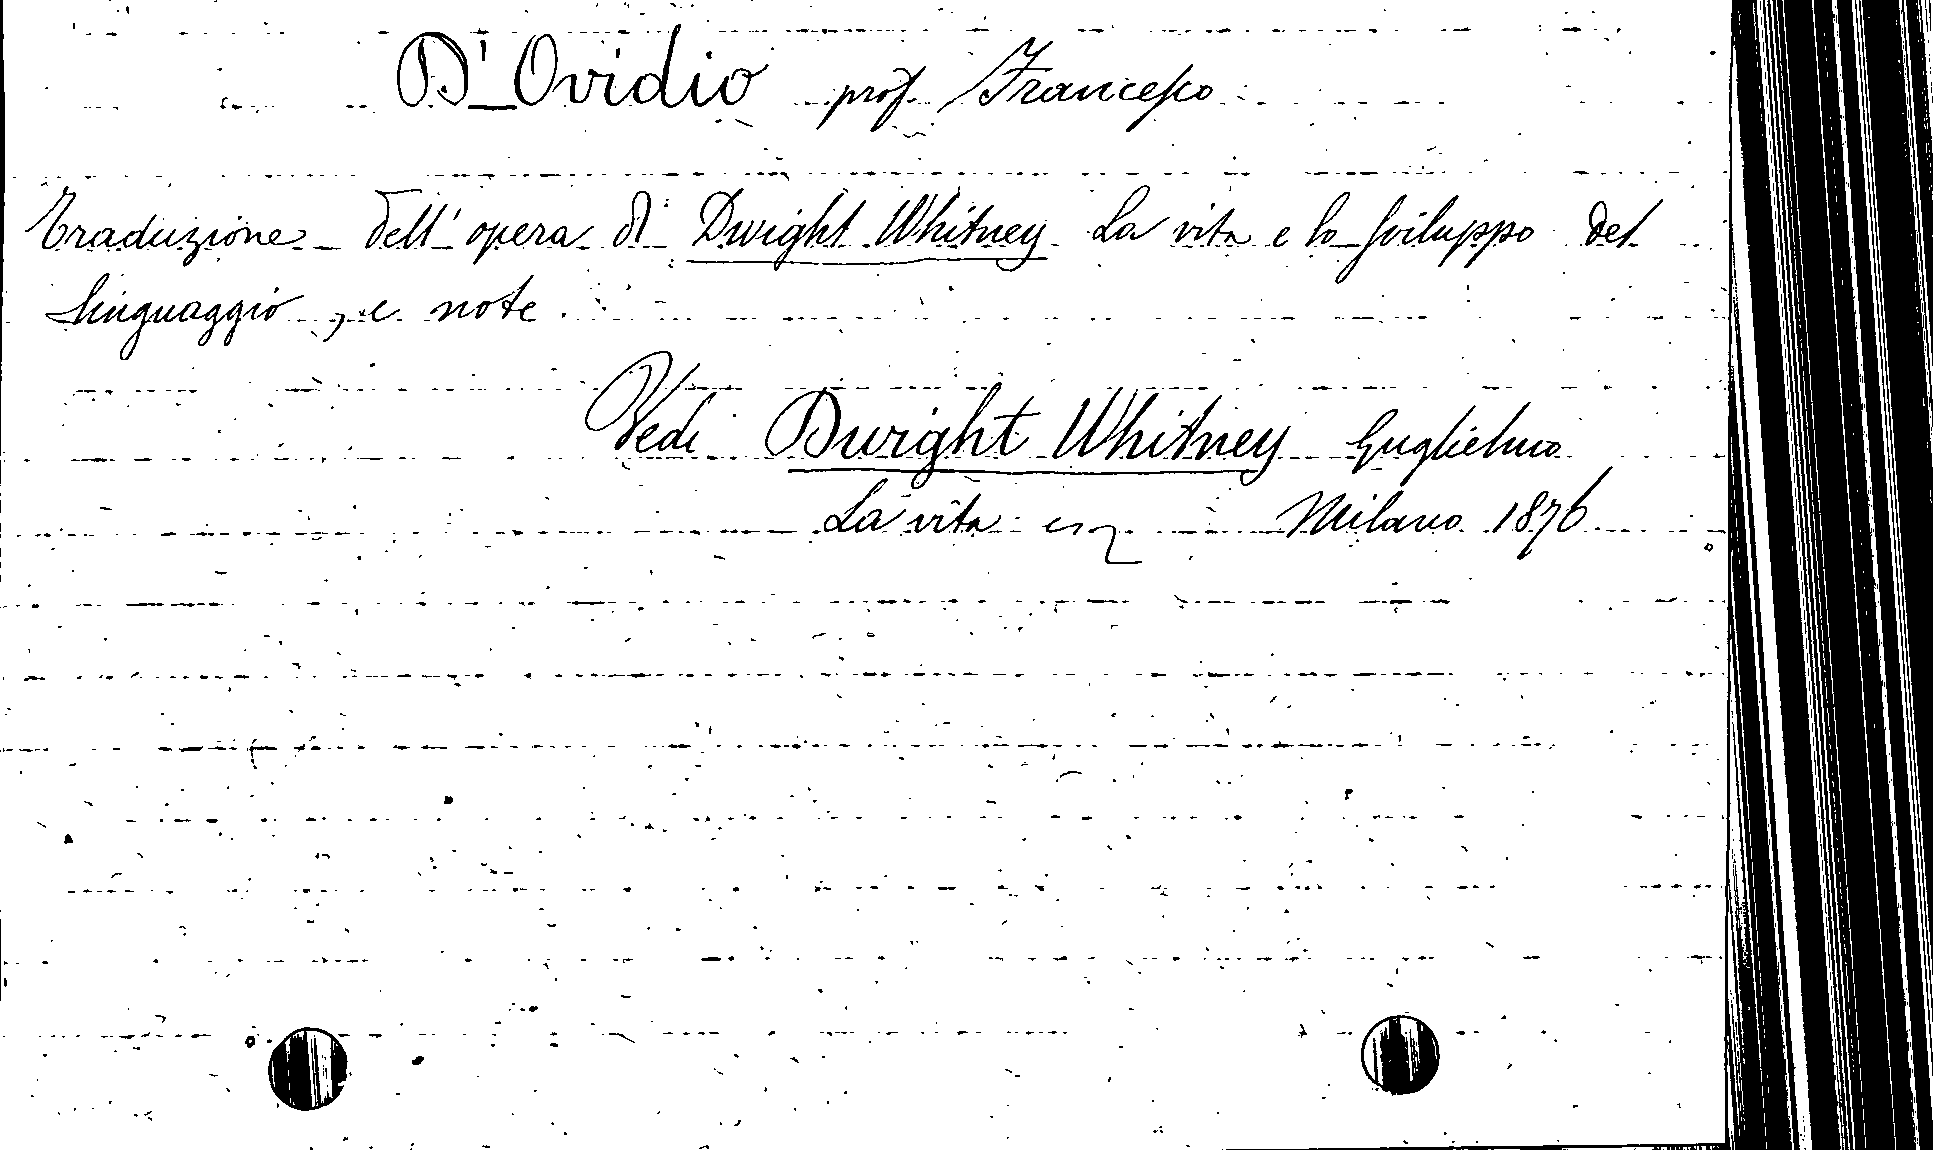 D'Ovidio prof. Francesco
Traduzione dell'opera di Dwight Whitney La vita e lo sviluppo del
linguaggio, e note.
Vedi Dwight Whitney Guglielmo
La vita Milano 1876